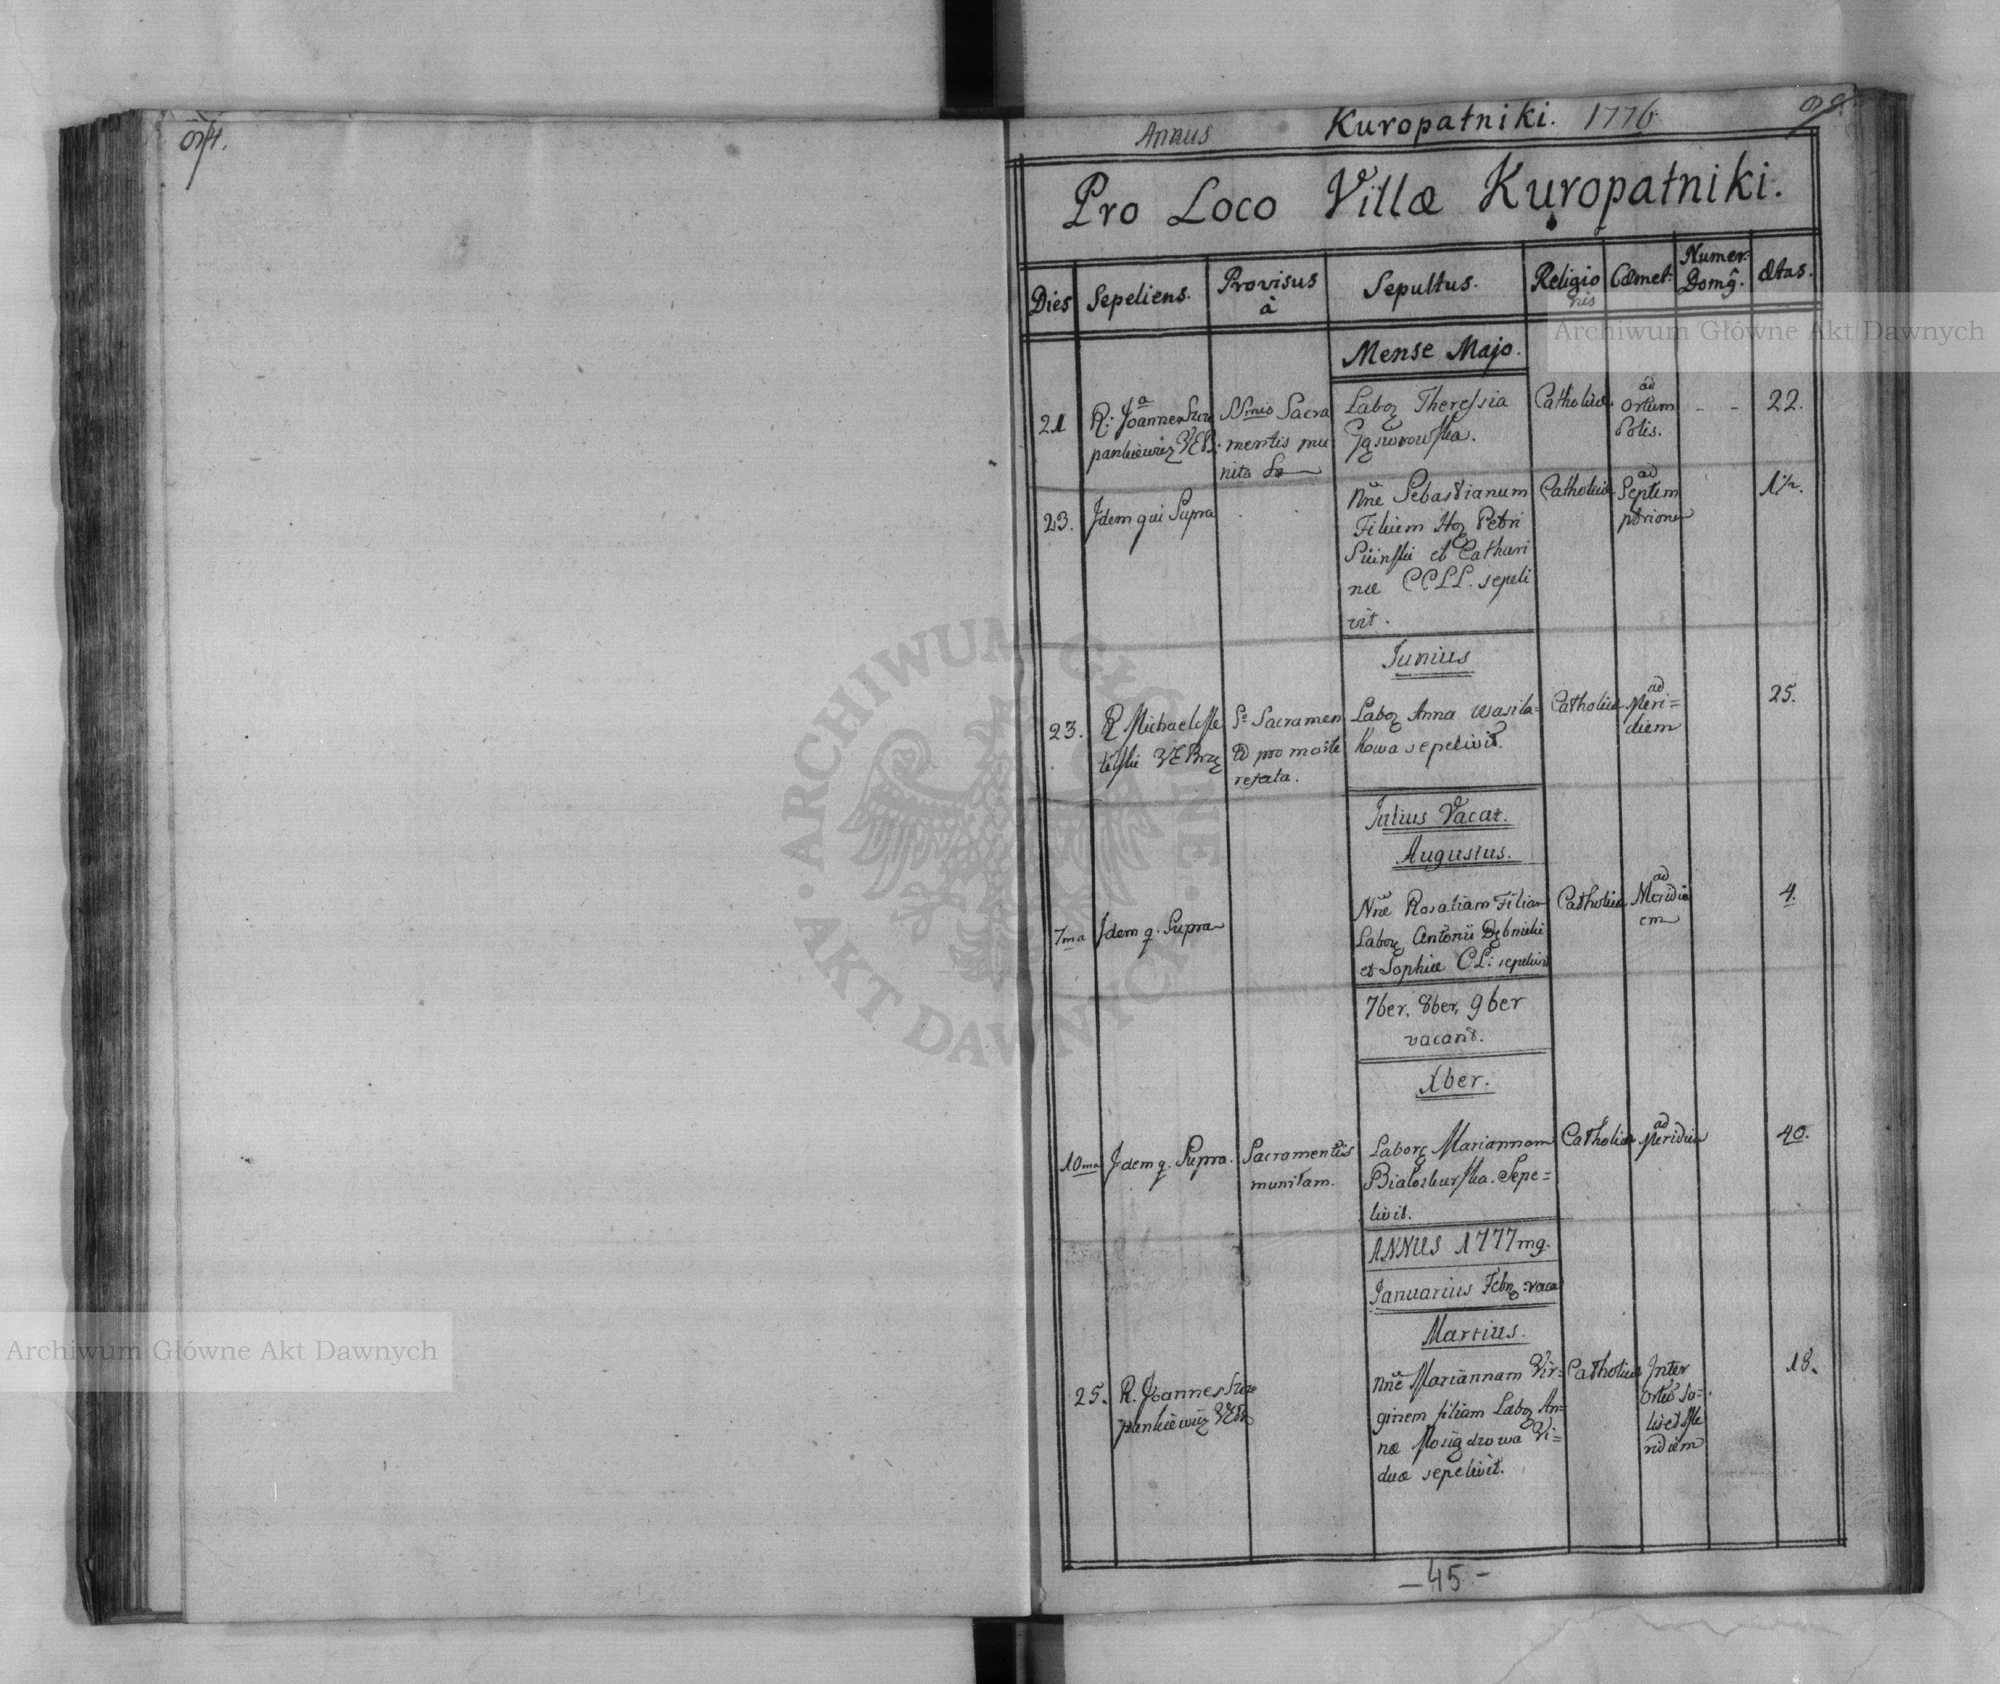 Annus Kuropatniki. 1776
Pro Loco Villæ Kuropatniki.
Dies
Sepeliens.
Provisus
à
Sepultus.
Religio
nis
Cœmet:
Numer:
Domȳ.
Ætas.
Mense Majo.
21
R: Joannes
SSmis Sacra
mentis mu
nita
Laboȝ Theressia
Catholica
ad
Ortum
Solis.
- -
22.
23.
Idem qui Supra
Nne Sebastianum
Filium Petri
et Cathari
næ CCLL. sepeli
vit.
Catholicæ
ad
Septem
ptrionem
1½.
Junius
23.
R Michael
Sa Sacramen
pro morte
refecta.
Laboȝ Anna Wasila=
kowa sepelivit.
Catholica
ad
Meri=
diem
25.
Julius Vacat.
Augustus.
7ma
Idem q. Supra
Nne Rosaliam Filiam
Laboȝ Antonii
et Sophiæ CL: sepelivit
Catholica
ad
Meridi
em
4.
7ber, 8ber, 9ber
vacant.
Xber.
10ma
Idem q. Supra.
Sacramentis
munitam.
Laboȝ Mariannam
Sepe=
livit.
Catholicæ
ad
Meridiem
40.
ANNUS 1777mȝ.
Januarius Febr: vaca
Martius.
25.
R. Joannes
Nne Mariannam Vir=
ginem filiam Laboȝ An=
næ Vi=
duæ sepelivit.
Catholicæ
Inter
Ortū So=
lis et Me
ridiem
18.
- 45 -
Archiwum Główne Akt Dawnych
Archiwum Główne Akt Dawnych
ARCHIWUM GŁÓWNE
AKT DAWNYCH